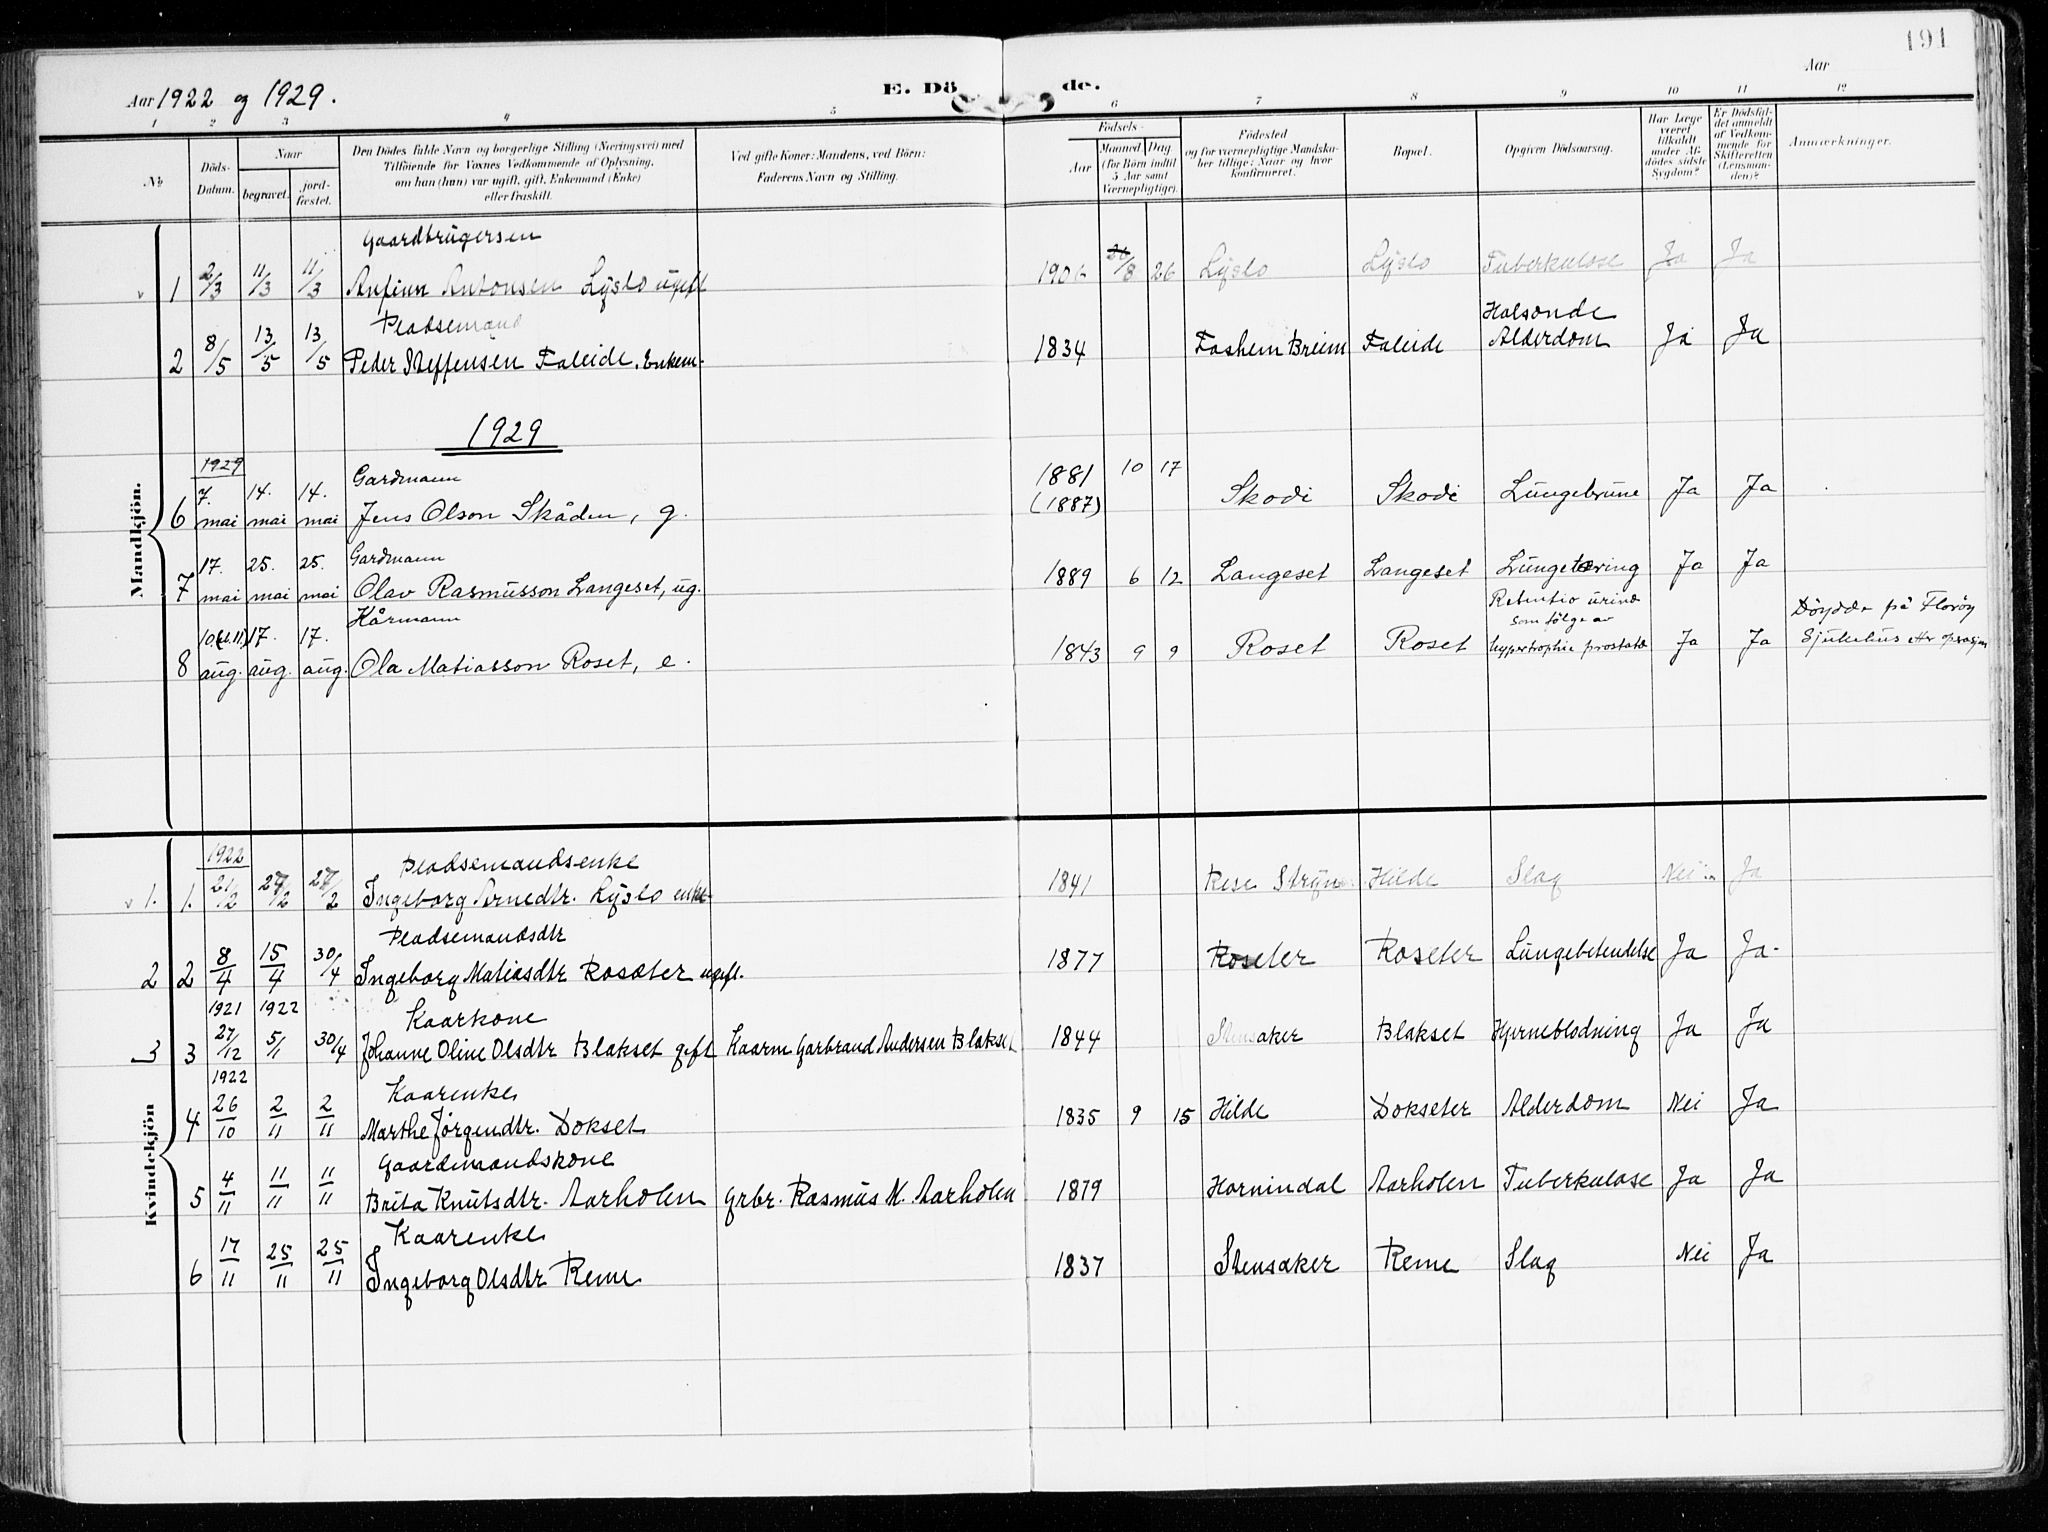 191
Aar 1922 og 1929.
E. Dö de.
Aar
1 2 3 4 5 6 7 8 9 10 11 12
No
Döds-Datum.
Naar
begravet.
jord-fæstet.
Den Dödes fulde Navn og borgerlige Stilling (Næringsvei) med
Tilföiende for Voxnes Vedkommende af Oplysning,
om han (hun) var ugift, gift, Enkemand (Enke)
eller fraskilt.
Ved gifte Koner: Mandens, ved Börn:
Faderens Navn og Stilling.
Födsels-
Aar
Maaned Dag.
(for Börn indtil
5 Aar samt
Værnepligtige).
Födested
og for værnepligtige Mandskaber tillige: Naar og hvor
konfirmeret.
Bopæl.
Opgiven Dödsaarsag.
Har Læge været tilkaldt under Afdödes sidste Sygdom?
Er Dödsfaldet anmeldt af Vedkommende for Skifteretten (Lensmanden)?
Anmærkninger.
Mandkjön.
Gaardbrugersen
1 2/3 11/3 11/3 Anfinn Antonsen Lyslo ugift 8 26 Lyslo Lyslo Tuberkulose Ja Ja
Pladsemand Halsonde
2 8/5 13/5 13/5 Peder Steffensen Faleide. Enkem. 1834 Foshem Breim Faleide Alderdom Ja Ja
1929
1929 Gardmann 1881 10 17
6 7. mai 14. mai 14. mai Jens Olson Skåden, g. (1887) Skodi Skodi Lungebrune Ja Ja
Gardmann
7 17. mai 25. mai 25. mai Olav Rasmusson Langeset, ug. 1889 6 12 Langeset Langeset Lungetæring Ja Ja
Kårmann Retentio urinæ som følge av Döydde på Floröy
8 10 (kl. 11) aug. 17. aug. 17. aug. Ola Matiasson Roset, e. 1843 9 9 Roset Roset hypertrophia prostatæ Ja Ja Sjukehus etter operasjon
Kvindekjön
1922 Pladsemandsenke
1. 1. 21/2 27/2 27/2 Ingeborg Arnedtr. Lyslo enke 1841 Stryn Hilde Slag Nei Ja
Pladsemandsdtr
2 2 8/4 15/4 30/4 Ingeborg Matiasdtr Rosæter ugift. 1877 Roseter Roseter Lungebetendelse Ja Ja
1921 1922 Kaarkone
3 3 27/12 5/1 30/4 Johanne Oline Olsdtr Blakset gift Kaarm Garbrand Andersen Blakset 1844 Stensaker Blakset Hjerneblodning Ja Ja
1922 Kaarenke
4 26/10 2/11 2/11 Marthe Jørgendtr. Dokset 1835 9 15 Hilde Dokseter Alderdom Nei Ja
Gaardmandskone
5 4/11 11/11 11/11 Brita Knutsdtr. Aarholen grbr. Rasmus M. Aarholen 1879 Hornindal Aarholen Tuberkulose Ja Ja
Kaarenke
6 17/11 25/11 25/11 Ingeborg Olsdtr Reme 1837 Stensaker Reme Slag Nei Ja